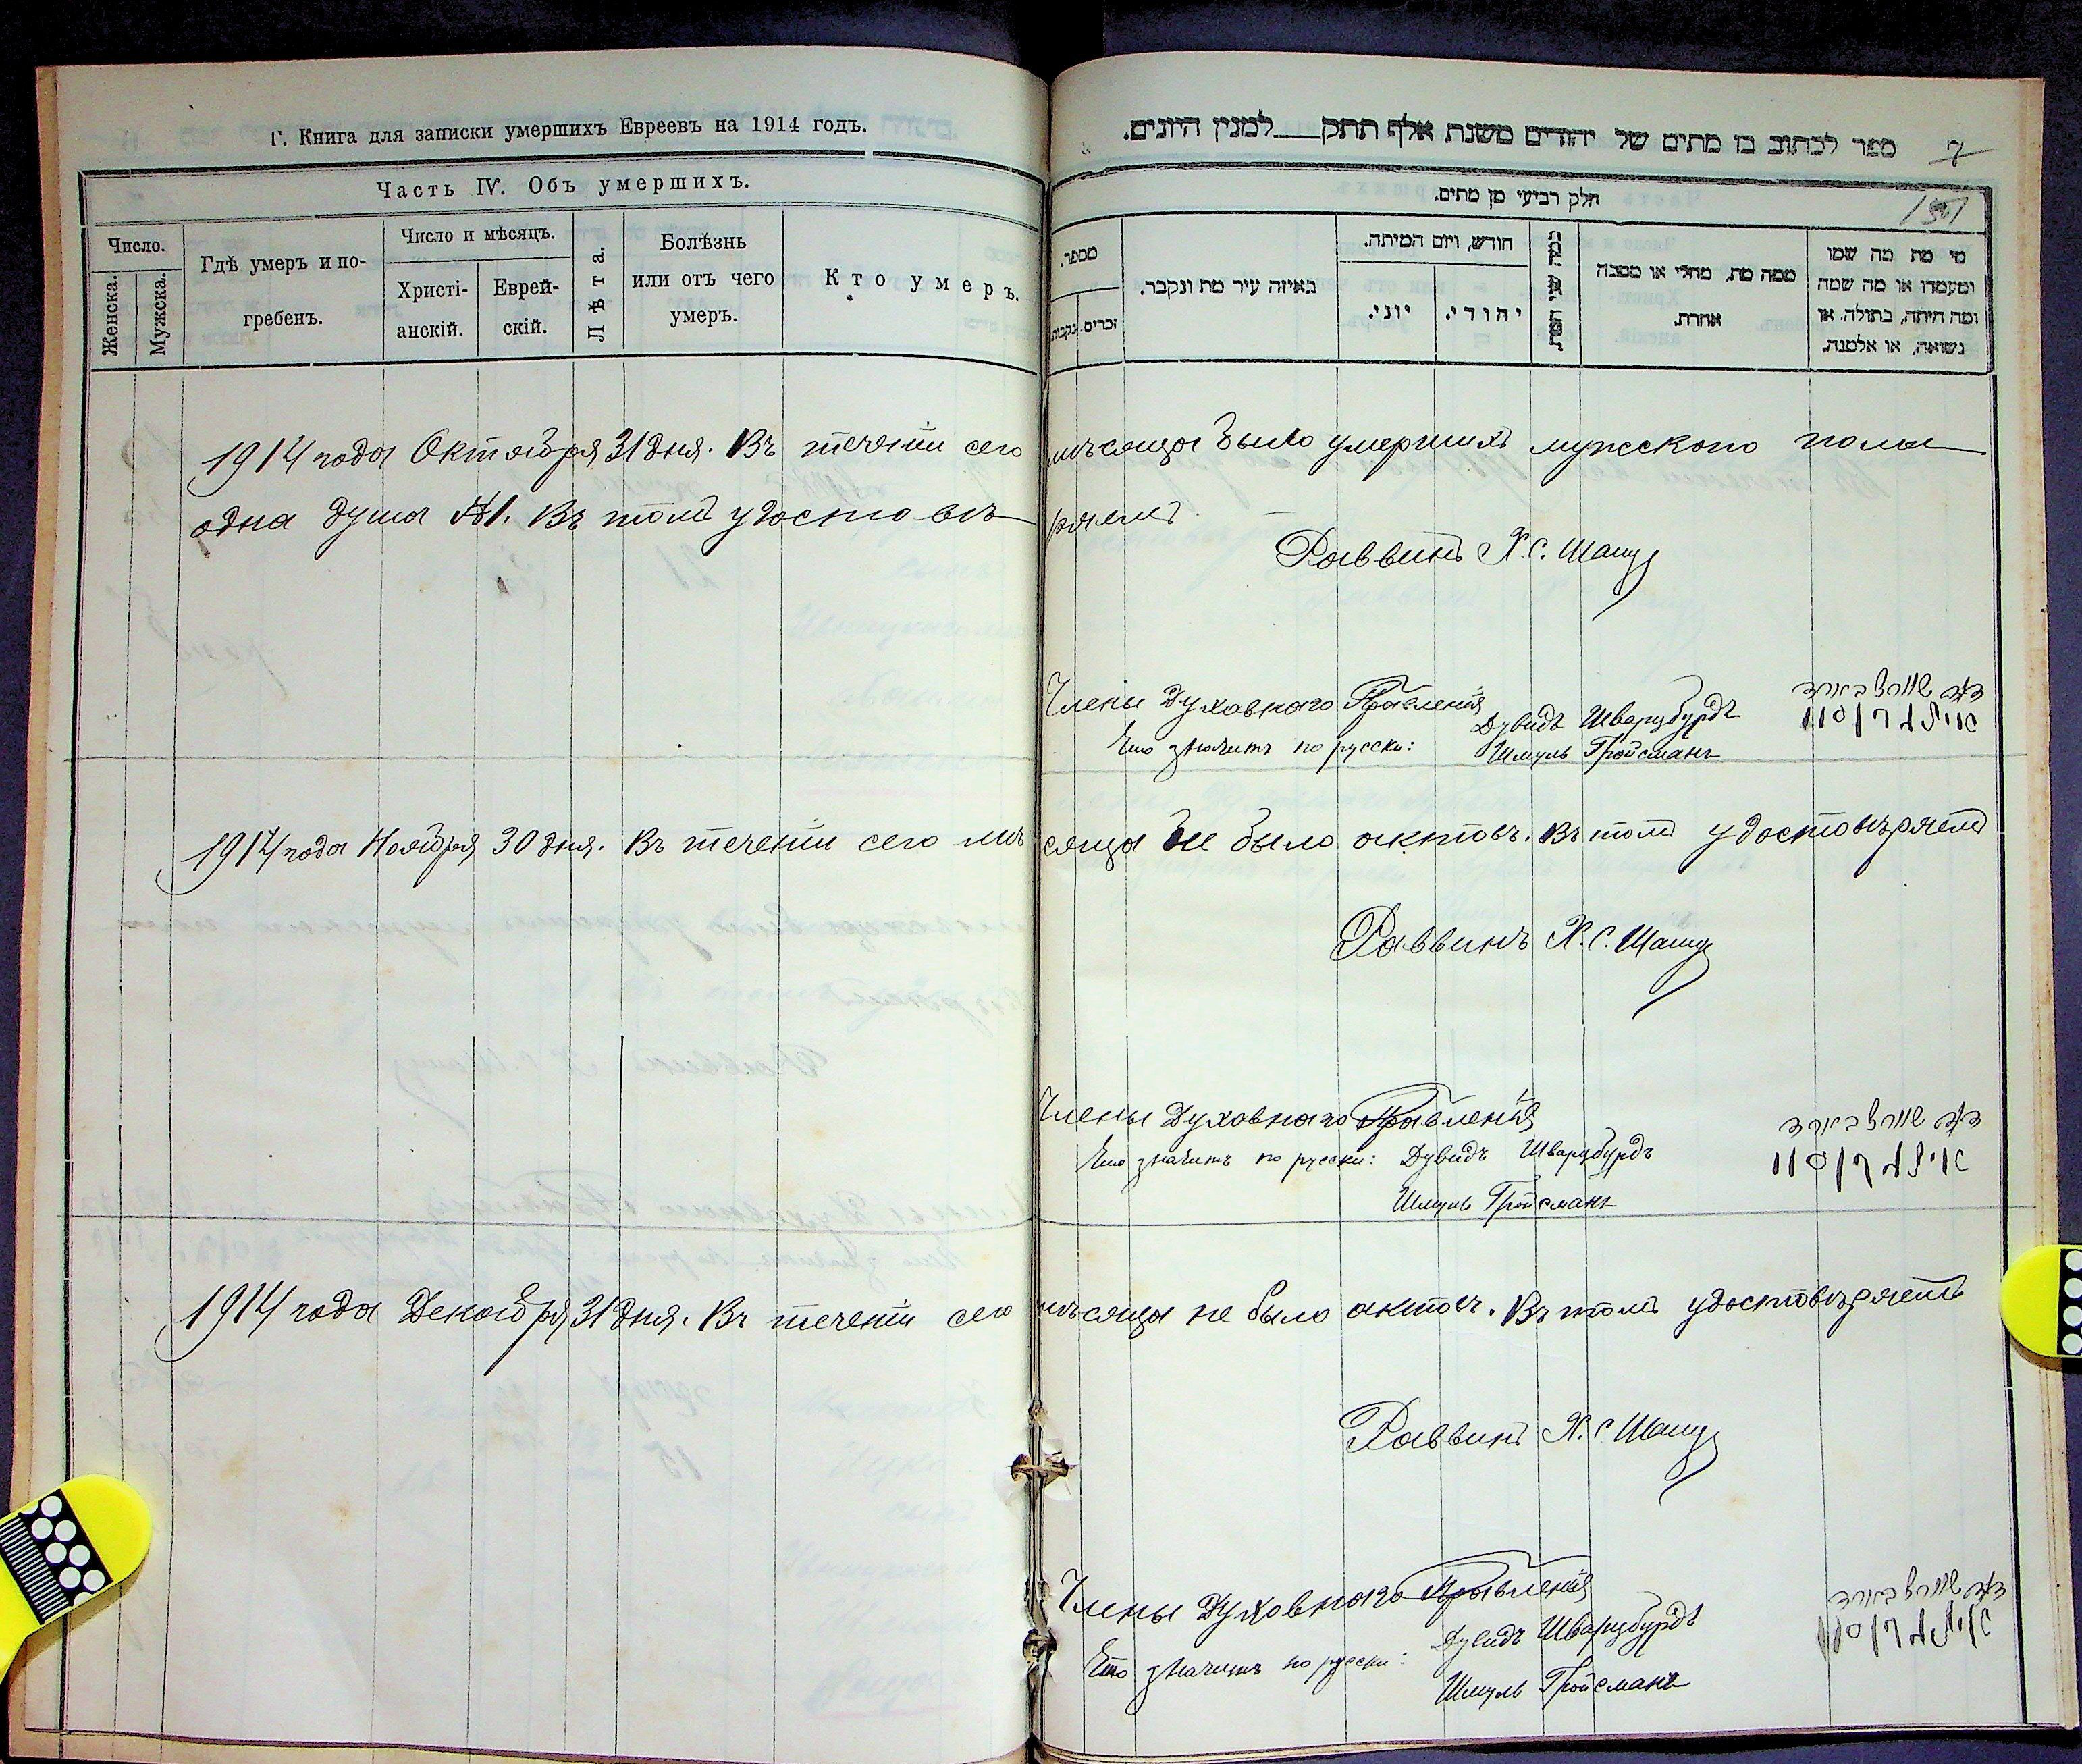 Г. Книга для записки умершихъ Евреевъ на 1914 годъ.
Часть IV. Объ умершихъ.
Число.
Женска.
Мужска.
Гдѣ умеръ и по-
гребенъ.
Число и мѣсяцъ.
Христі-
анскій.
Еврей-
скій.
Лѣта.
Болѣзнь
или отъ чего
умеръ.
Кто умеръ.
ספר לכתוב בו מתים של יהודים משנת אלף תתק___למנין היונים.
7
חלק רביעי מן מתים.
מספר.
זכרים.
נקבות.
באיזה עיר מת ונקבר.
חודש, ויום המיתה.
יוני.
יהודי.
ממה מת, מחלי או מסבה
אחרת.
מי מת מה שמו
ומעמדו או מה שמה
ומה היתה, בתולה, או
נשואה, או אלמנה.
1914 года Октября 31 дня. Въ теченіи сего мѣсяца было умершихъ мужского пола
одна душа №1. Въ томъ удостовѣряемъ.
Раввинъ Х. С.
Члены Духовнаго Правленія
דוד שווארצבורד
Дувидъ Шварцбурдъ
Что значитъ по русски:
Шмуль Гройсманъ
1914 года Ноября 30 дня. Въ теченіи сего мѣсяца не было актовъ. Въ томъ удостовѣряемъ
Раввинъ Х. С.
Члены Духовнаго Правленія
דוד שווארצבורד
Что значитъ по русски: Дувидъ Шварцбурдъ
Шмуль Гройсманъ
1914 года Декабря 31 дня. Въ теченіи сего мѣсяца не было актовъ. Въ томъ удостовѣряемъ
Раввинъ Х. С.
Члены Духовнаго Правленія
דוד שווארצבורד
Дувидъ Шварцбурдъ
Что значитъ по русски:
Шмуль Гройсманъ